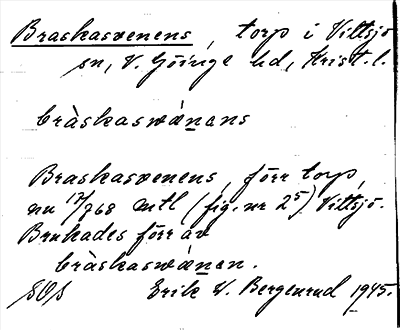 Braskasvenens, torp i Vittsjö
sn, V. Göinge hd, Krist. l.
bràskaswánens
Braskasvenens, förr torp,
nu 17/768 mtl (fig. nr 25) Vittsjö.
Brukades förr av
bràskaswánen.
SOS Erik W. Bergenrud 1945.